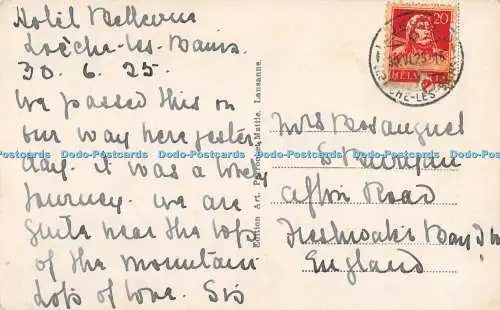 Hotel Bellevue
Loèche-les-Bains
30.6.25.
We passed this on
our way here yester
day. it was a lovely
journey. we are
quite near the tops
of the mountain
Lots of love. Sis
Edition Art. Mattile, Lausanne.
20
HELVETIA
LES
Mrs Rosanguet
Afton Road
Freshwater Bay I W
England
Dodo-Postcards Dodo-Postcards Dodo-Postcards Dodo-Postcards Dodo-Postcards Dodo-Postcards Dodo-Postcards